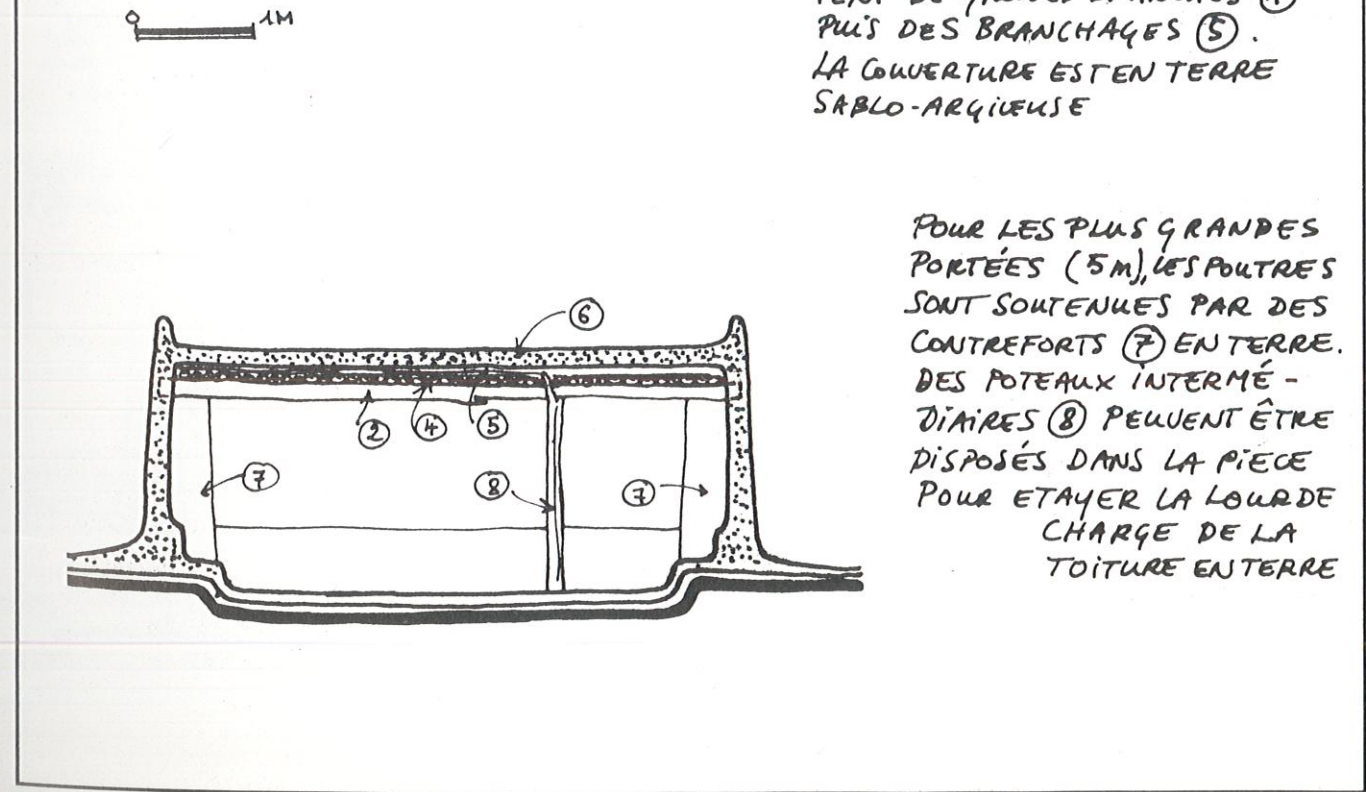 0 1M
PUIS DES BRANCHAGES ⑤.
LA COUVERTURE EST EN TERRE
SABLO-ARGILEUSE
POUR LES PLUS GRANDES
PORTÉES (5m), LES POUTRES
SONT SOUTENUES PAR DES
CONTREFORTS ⑦ EN TERRE.
DES POTEAUX INTERMÉ-
DIAIRES ⑧ PEUVENT ÊTRE
DISPOSÉS DANS LA PIECE
POUR ETAYER LA LOURDE
CHARGE DE LA
TOITURE EN TERRE
⑥
② ④ ⑤
⑦ ⑧ ⑦